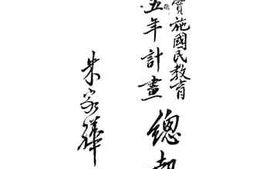 實施國民教育
五年計畫總
朱家驊